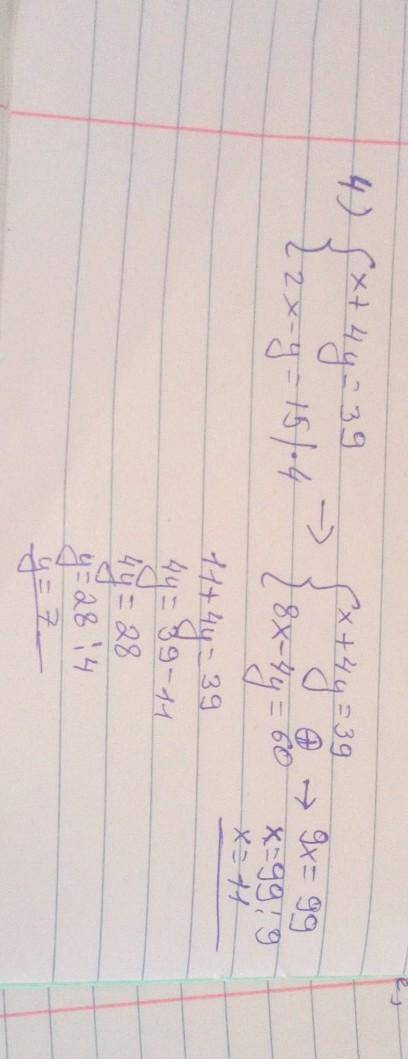 4) { x + 4y = 39
{ 2x - y = 15 /·4 → { x + 4y = 39
{ 8x - 4y = 60 ⊕ → 9x = 99
x = 99 : 9
x = 11
11 + 4y = 39
4y = 39 - 11
4y = 28
y = 28 : 4
y = 7